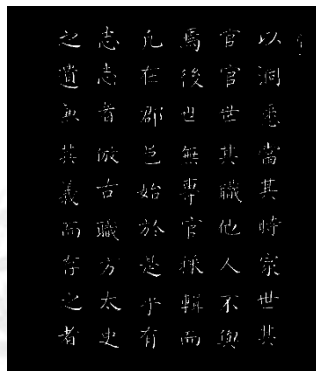 以洞悉當其時宗世其
官官世其職他人不與
焉後世無專官採輯而
凡在郡邑始於是乎有
志志者倣古職方太史
之遺無其義而存之者